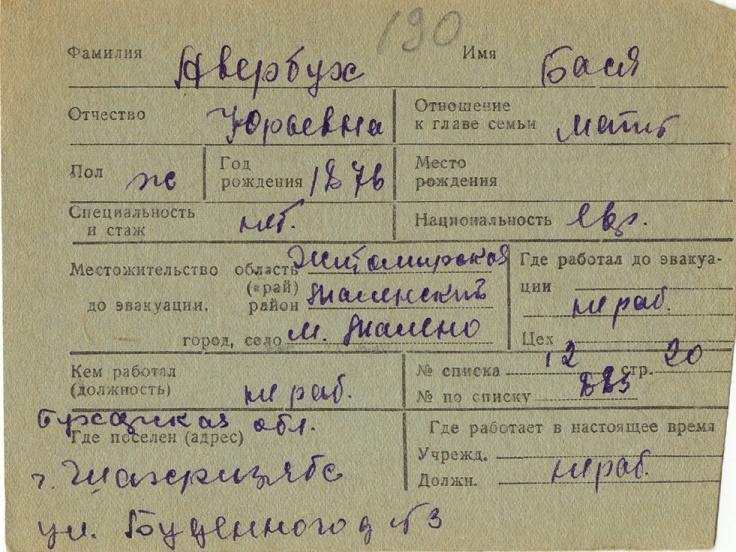 190
Фамилия Авербух Имя Бася
Отчество Юрьевна Отношение к главе семьи мать
Пол ж Год рождения 1876 Место рождения
Специальность и стаж нет. Национальность евр.
Местожительство до эвакуации. область (край) Житомирская Где работал до эвакуации не раб.
район
город, село м. Цех
Кем работал (должность) не раб. № списка 12 стр. 20
№ по списку
Бухарская обл.
Где поселен (адрес) Где работает в настоящее время
г. Шахризябс Учрежд. не раб.
Должн.
ул. Буденного д №3